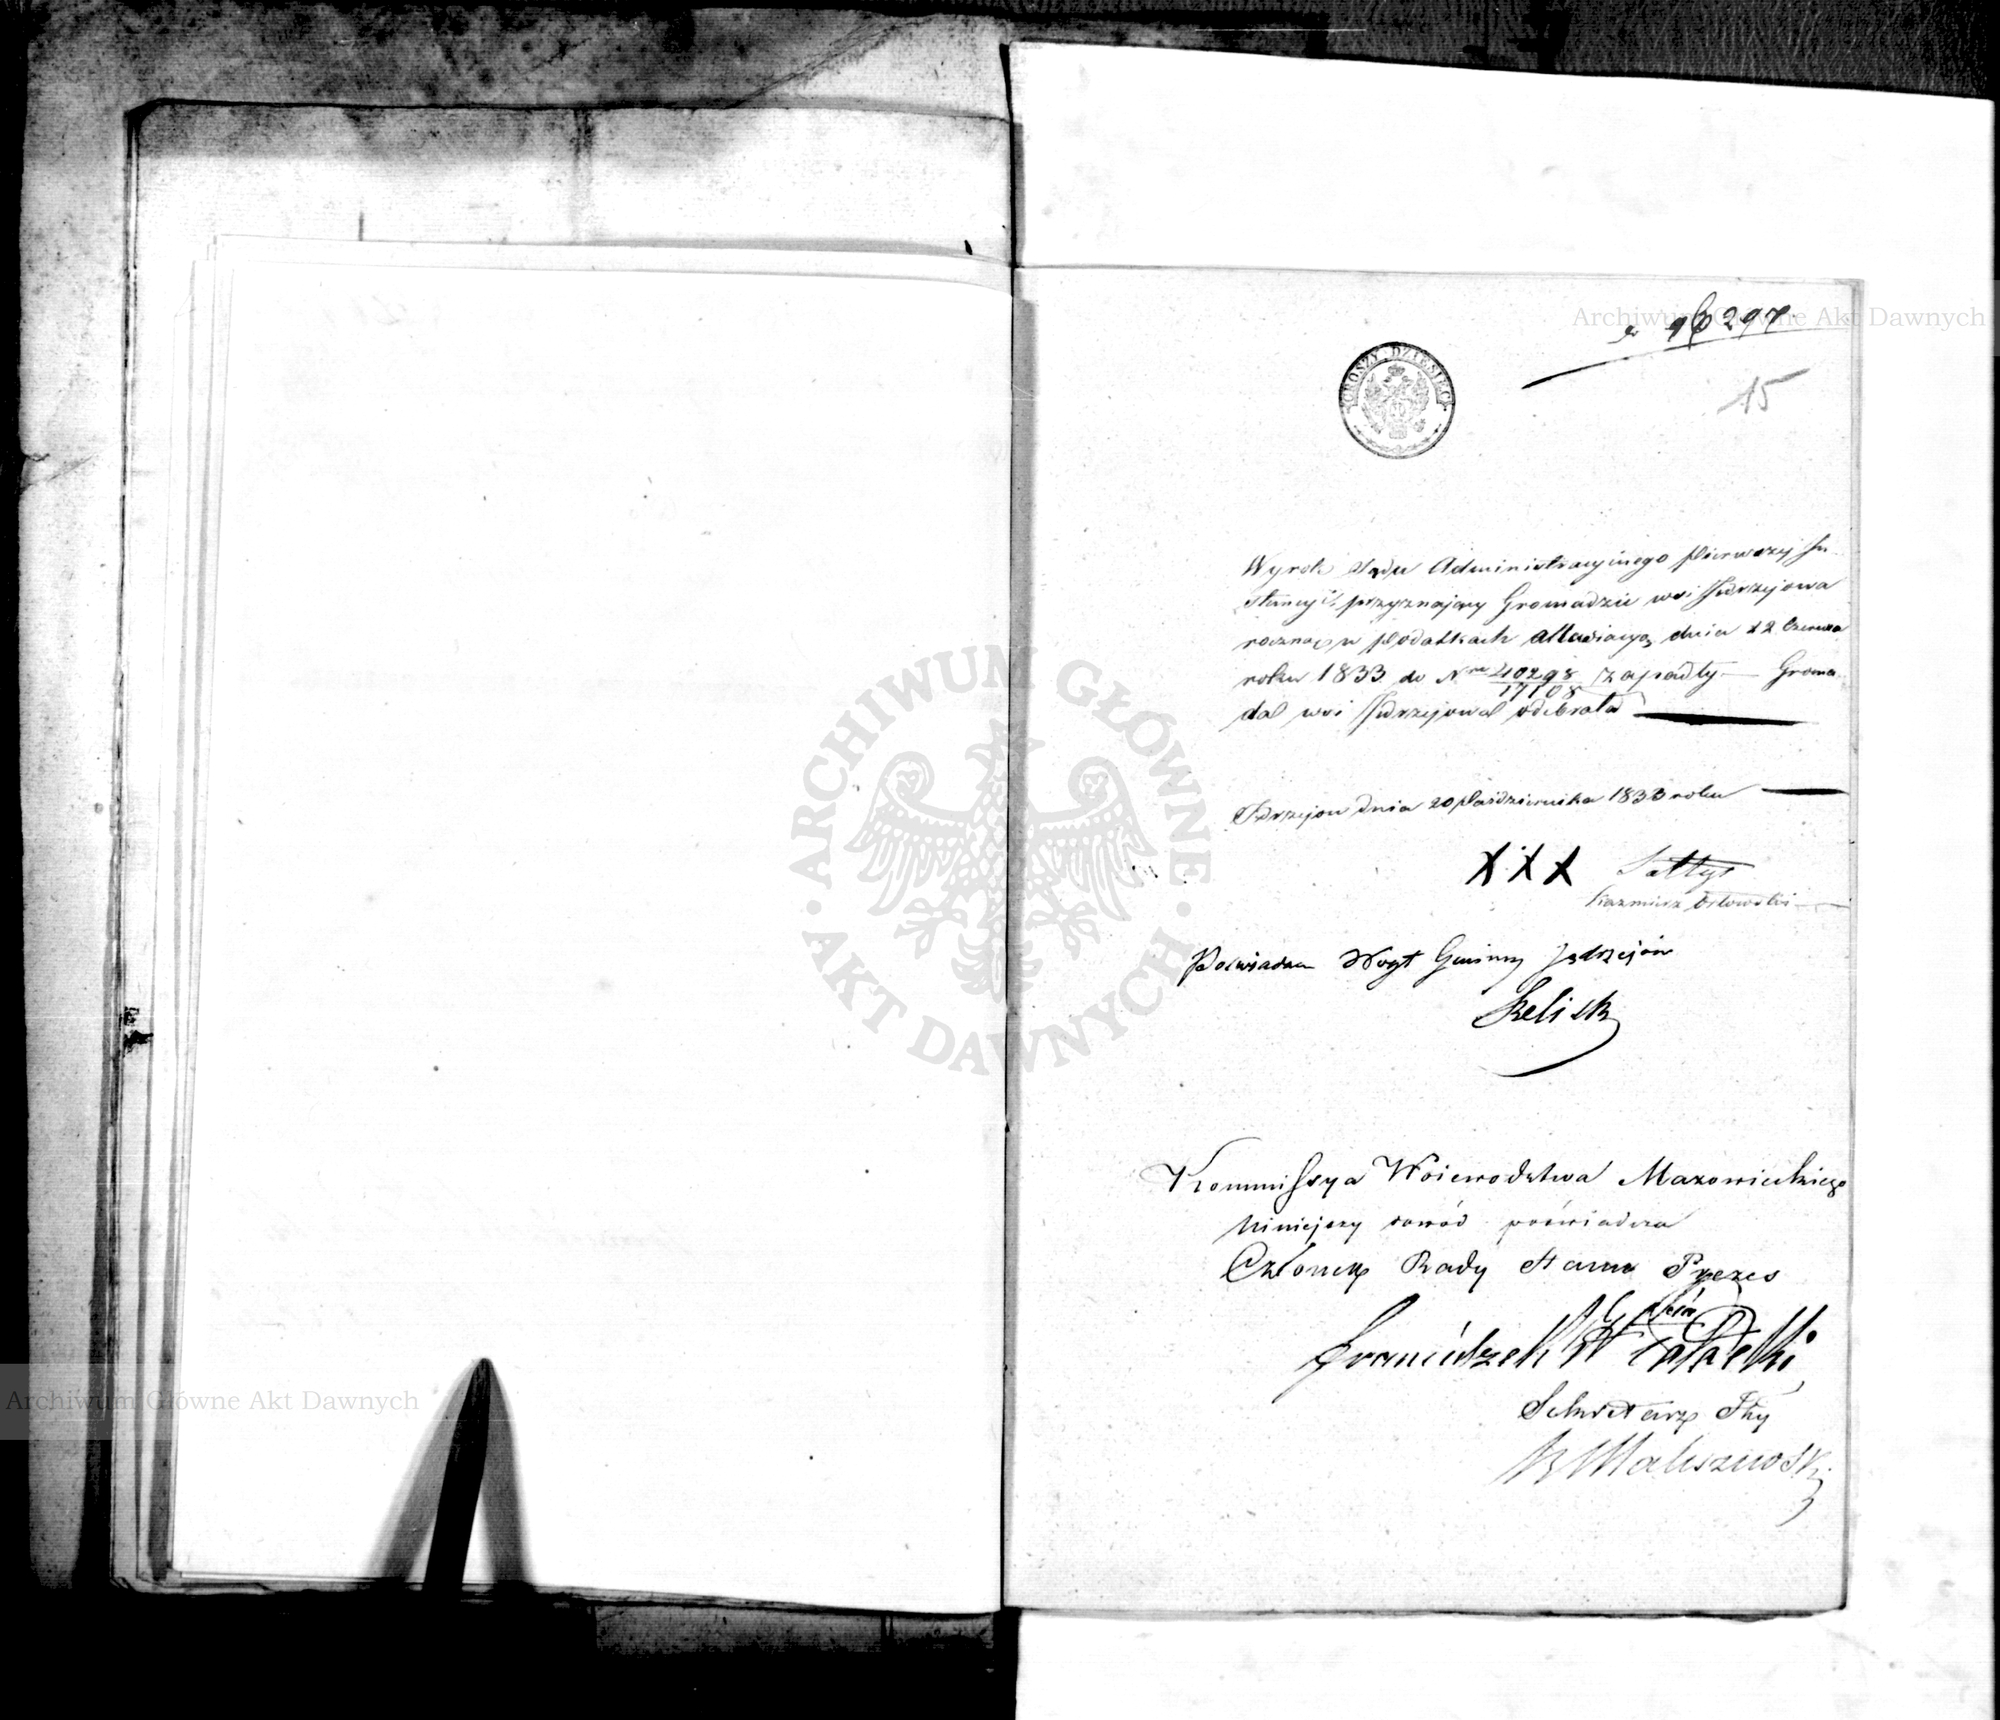 Archiwum Główne Akt Dawnych
96297
15
GROSZY DZIESIĘĆ
Wyrok Sądu Administracyinego pierwszej In
stancyi przyznaiący Gromadzie wsi Jędrzejowa
w podatkach dnia 12 Czerwca
roku 1833 do Nro 40298/17108 zapadły — Groma
da wsi Jędrzejowa odebrała
Jędrzejow dnia 20 Października 1833 roku
X X X Sołtys
Kazmierz Orłowski
Poświadcza Woyt Gminy Jędrzejów
ARCHIWUM GŁÓWNE · AKT DAWNYCH ·
Kommissya Woiewodztwa Mazowieckiego
Niniejszy dowód poświadcza
Członek Rady Stanu Prezes
Franciszek Potocki
Sekretarz
Maliszewski
Archiwum Główne Akt Dawnych